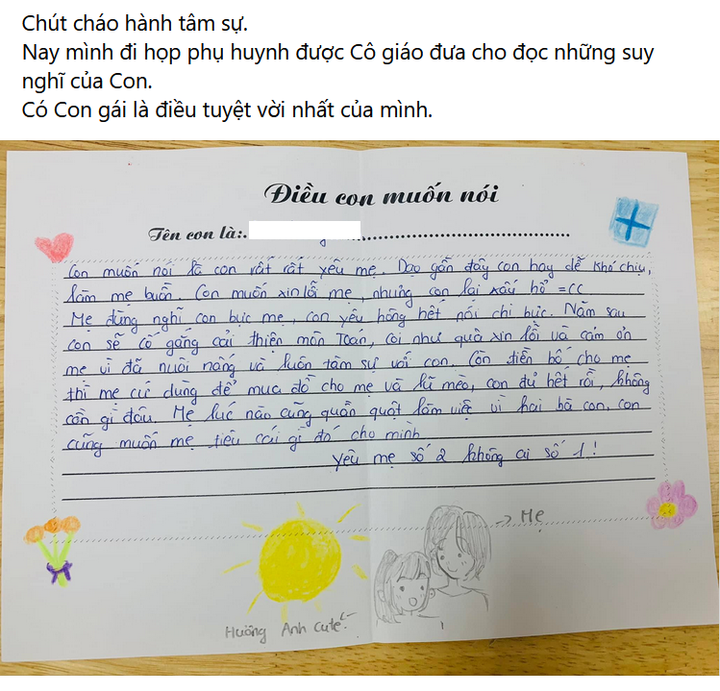 Chút cháo hành tâm sự.
Nay mình đi họp phụ huynh được Cô giáo đưa cho đọc những suy
nghĩ của Con.
Có Con gái là điều tuyệt vời nhất của mình.
Điều con muốn nói
Tên con là:
Con muốn nói là con rất rất yêu mẹ. Dạo gần đây con hay dễ khó chịu,
làm mẹ buồn. Con muốn xin lỗi mẹ, nhưng con lại xấu hổ =((
Mẹ đừng nghĩ con bực mẹ, con yêu hông hết nói chi bực. Năm sau
con sẽ cố gắng cải thiện môn Toán, coi như quà xin lỗi và cảm ơn
mẹ vì đã nuôi nấng và luôn tâm sự với con. Còn tiền bố cho mẹ
thì mẹ cứ dùng để mua đồ cho mẹ và lũ mèo, con đủ hết rồi, không
cần gì đâu. Mẹ lúc nào cũng quần quật làm việc vì hai bà con, con
cũng muốn mẹ tiêu cái gì đó cho mình
Yêu mẹ số 2 không ai số 1!
→ Mẹ
Hương Anh cute